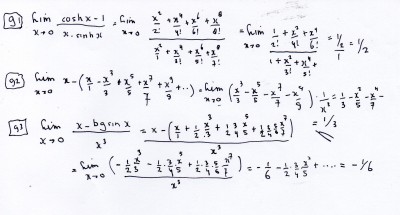 91) lim x→0 (cosh x - 1)/(x · sinh x) = lim x→0 (x²/2! + x⁴/4! + x⁶/6! + x⁸/8!)/(x²/1 + x⁴/3! + x⁶/5! + x⁸/7!) = lim x→0 (1/2! + x²/4! + x⁴/6!)/(1 + x²/3! + x⁴/5! +) = (1/2)/1 = 1/2
92) lim x→0 x - (x/1 - x³/3 + x⁵/5 - x⁷/7 + x⁹/9 + ··) = lim x→0 (x³/3 - x⁵/5 - x⁷/7 - x⁹/9) · 1/x³ = 1/3 - x²/5 - x⁴/7 -
= 1/3
93) lim x→0 (x - bgsin x)/x³ = (x - (x/1 + 1/2 x³/3 + 1/2 3/4 x⁵/5 + 1/2 3/4 5/6 x⁷/7))/x³
= lim x→0 (- 1/2 x³/3 - 1/2 · 3/4 x⁵/5 + 1/2 · 3/4 · 5/6 x⁷/7)/x³ = - 1/6 - 1/2 · 3/4 x²/5 + ..... = - 1/6